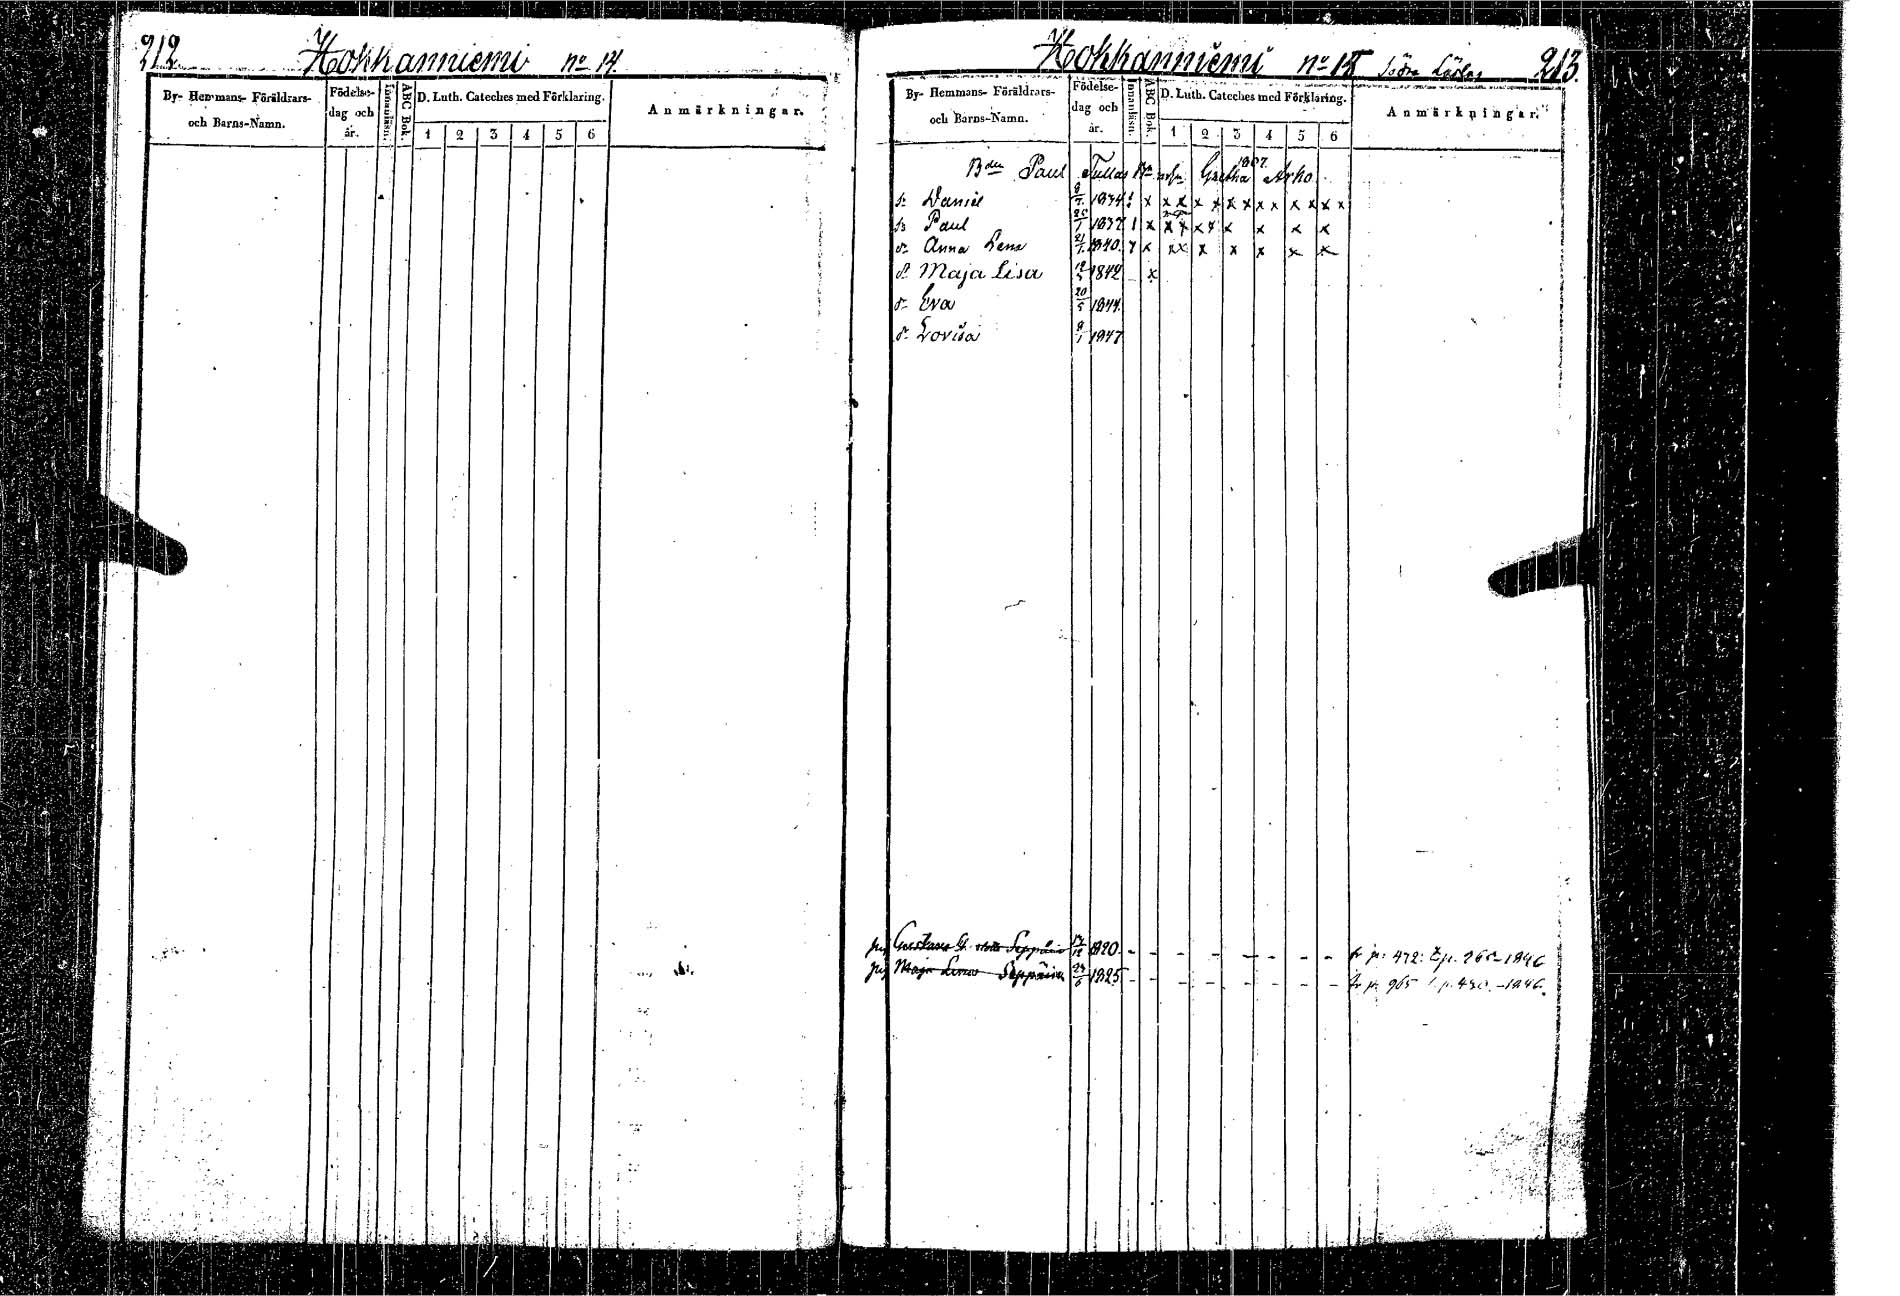 212 Hokkanniemi no 14.
By- Hemmans- Föräldrars-
och Barns-Namn.
Födelse-
dag och
år.
Innanläsn.
ABC Bok.
D. Luth. Cateches med Förklaring.
1 2 3 4 5 6
Anmärkningar.
Hokkanniemi no 213.
By- Hemmans- Föräldrars-
och Barns-Namn.
Födelse-
dag och
år.
Innanläsn.
ABC Bok.
D. Luth. Cateches med Förklaring.
1 2 3 4 5 6
Anmärkningar.
1807.
Bden Paul Tullas Gretha Arho
s. Daniel 1834 x x x x x x x x x x x x
s. Paul 25/1 1837 x x x x x x x x x
d. Anna Lena 21/1 1840. x x x x x x x x
d. Maja Lisa 1842 x
d. Eva 20/5 1844.
d. Lovisa 1847
Gustava Seppäin 1820. - - - - - - - - fr p. 472: 1846
Maja Leena Seppäin 1825 - - - - - - - - fr p. 965 p. 430. - 1846.